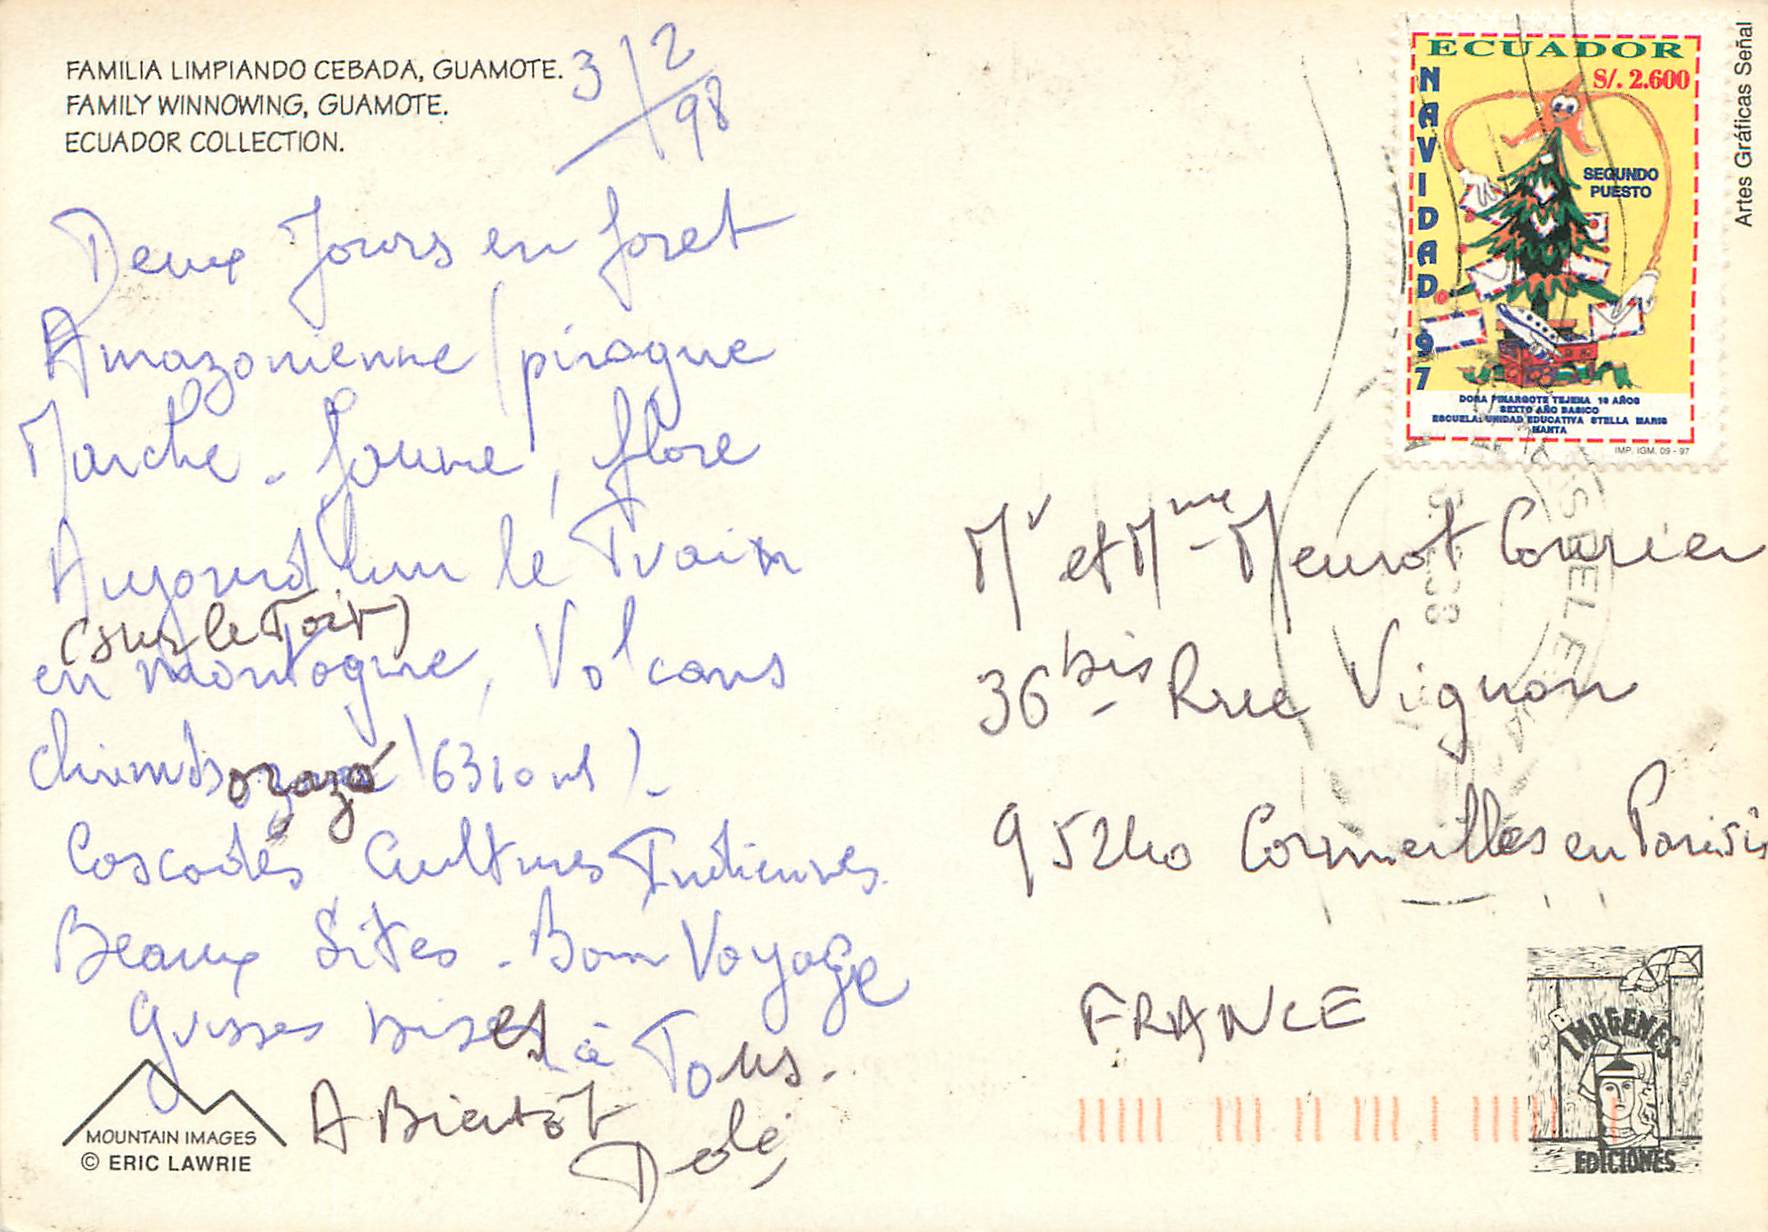 FAMILIA LIMPIANDO CEBADA, GUAMOTE.
FAMILY WINNOWING, GUAMOTE.
ECUADOR COLLECTION.
3/2
98
Deux Jours en foret
Amazonienne (pirogue
Marche - faune, flore
Aujourd'hui le Train
(sur le Toit)
en montagne, Volcans
Chimborazo (6310 m) -
Cascades Cultures Indiennes.
Beaux Sites - Bon Voyage
Grosses bises à Tous.
A Bientôt
MOUNTAIN IMAGES
© ERIC LAWRIE
ECUADOR
S/. 2.600
NAVIDAD 97
SEGUNDO
PUESTO
DORA PINARGOTE TEJENA 10 AÑOS
SEXTO AÑO BASICO
ESCUELA: UNIDAD EDUCATIVA STELLA MARIS
MANTA
IMP. IGM. 09 - 97
Artes Gráficas Señal
Mr et Mme Meurot Courier
36 bis Rue Vignon
95240 Cormeilles en Parisis
FRANCE
IMAGENES
EDICIONES